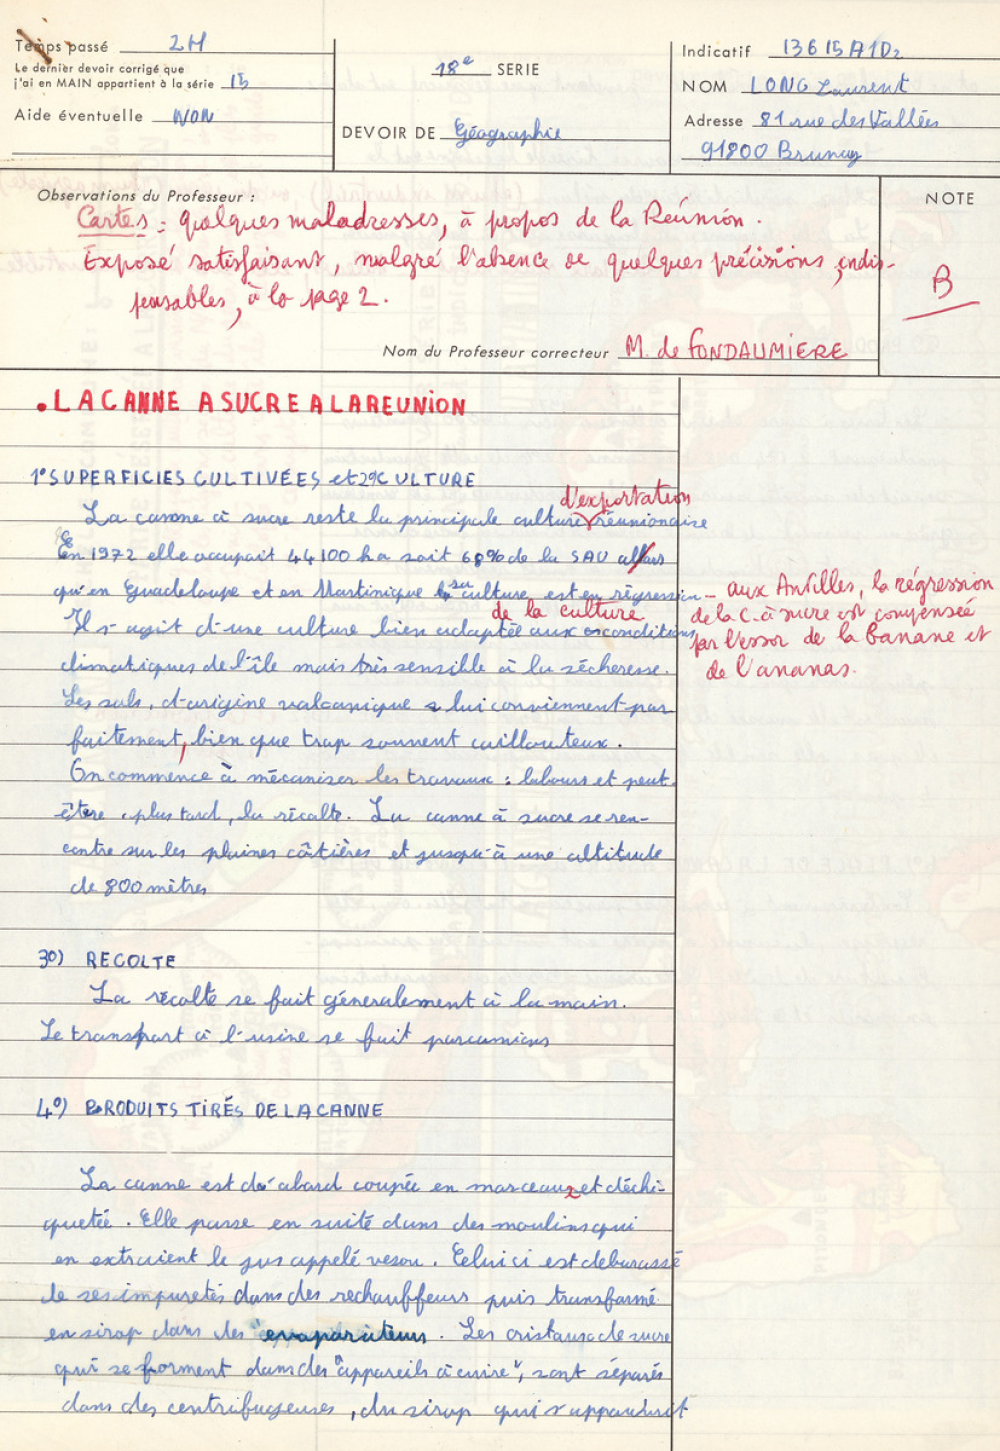 Temps passé 2H
Le dernier devoir corrigé que
j'ai en MAIN appartient à la série 15
Aide éventuelle NON
18e SERIE
DEVOIR DE Géographie
Indicatif 13615A1D2
NOM LONG Laurent
Adresse 81 rue des Vallées
91800 Brunoy
Observations du Professeur :
Cartes : quelques maladresses, à propos de la Réunion.
Exposé satisfaisant, malgré l'absence de quelques précisions indis-
pensables, à la page 2.
Nom du Professeur correcteur M. de FONDAUMIERE
NOTE
B
. LA CANNE A SUCRE A LA REUNION
1° SUPERFICIES CULTIVÉES et 2° CULTURE
d'exportation
La canne à sucre reste la principale culture réunionaise
En 1972 elle occupait 44100 ha soit 68% de la SAU alors
qu'en Guadeloupe et en Martinique sa culture est en régression
de la culture
Il s'agit d'une culture bien adaptée aux conditions
climatiques de l'île mais très sensible à la sécheresse.
Les sols, d'origine volcanique lui conviennent par
faitement, bien que trop souvent caillouteux.
On commence à mécaniser les travaux : labours et peut-
être, plus tard, la récolte. La canne à sucre se ren-
contre sur les plaines côtières et jusqu'à une altitude
de 800 mètres
– aux Antilles, la régression
de la c. à sucre est compensée
par l'essor de la banane et
de l'ananas.
3°) RECOLTE
La récolte se fait généralement à la main.
Le transport à l'usine se fait par camions
4°) PRODUITS TIRÉS DE LA CANNE
La canne est d'abord coupée en morceaux et déchi-
quetée. Elle passe en suite dans des moulins qui
en extraient le jus appelé vesou. Celui ci est debarassé
de ses impuretés dans des rechauffeurs puis transformé
en sirop dans des "evaporateurs. Les cristaux de sucre
qui se forment dans des "appareils à cuire", sont séparés
dans des centrifugeuses, du sirop qui s'appauvrit